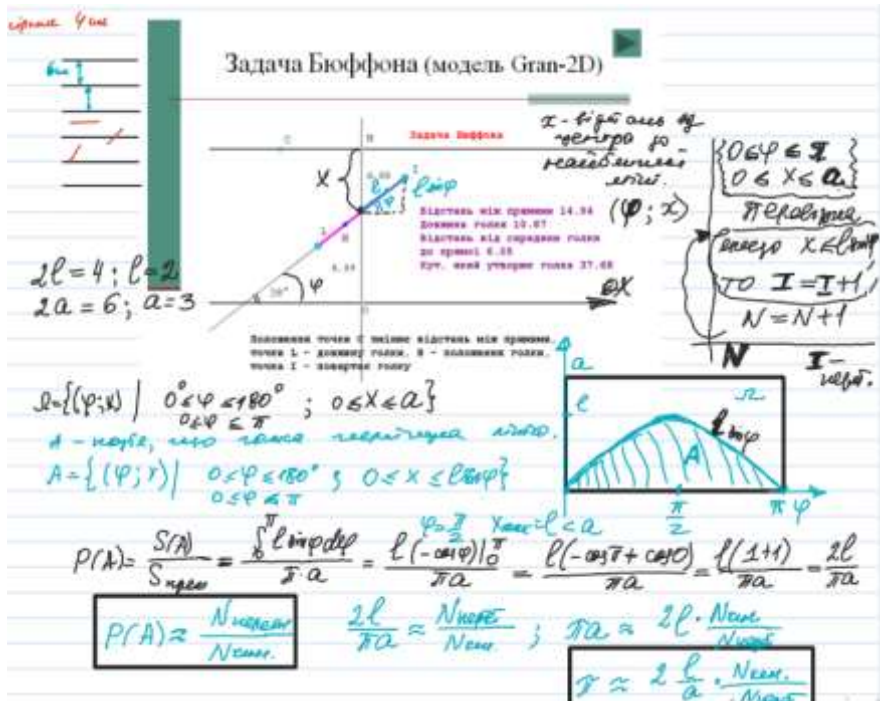 Задача Бюффона (модель Gran-2D)
Задача Бюффона
x - відстань від
центра до
найближчої
лінії.
(φ; x)
0 ≤ φ ≤ π
0 ≤ x ≤ a
Перевірка
якщо x ≤ l sin φ
то I = I+1
N = N+1
N I -
C
X
l
l sin φ
φ
φ
OX
Відстань між прямими 14.94
Довжина голки 10.87
Відстань від середини голки
до прямої 6.08
Кут, який утворює голка 37.68
2l = 4; l = 2
2a = 6; a = 3
Положення точки C змінює відстань між прямими.
точка L - довжину голки. B - положення голки.
точка I - повертає голку
Ω={(φ;x) | 0° ≤ φ ≤ 180° ; 0 ≤ x ≤ a}
0 ≤ φ ≤ π
A - подія, що голка перетнула лінію.
A={(φ;x) | 0 ≤ φ ≤ 180° ; 0 ≤ x ≤ l sin φ}
0 ≤ φ ≤ π
a
l
Ω
l sin φ
A
π/2
π φ
φ = π/2 x = l < a
P(A) = S(A)/Sпрям = ∫₀^π l sin φ dφ / π·a = l(-cos φ)|₀^π / πa = l(-cos π + cos 0) / πa = l(1+1)/πa = 2l/πa
P(A) ≈ Nперет/Nвип. 2l/πa ≈ Nперет/Nвип. ; πa ≈ 2l · Nвип./Nперет
π ≈ 2 l/a · Nвип./Nперет